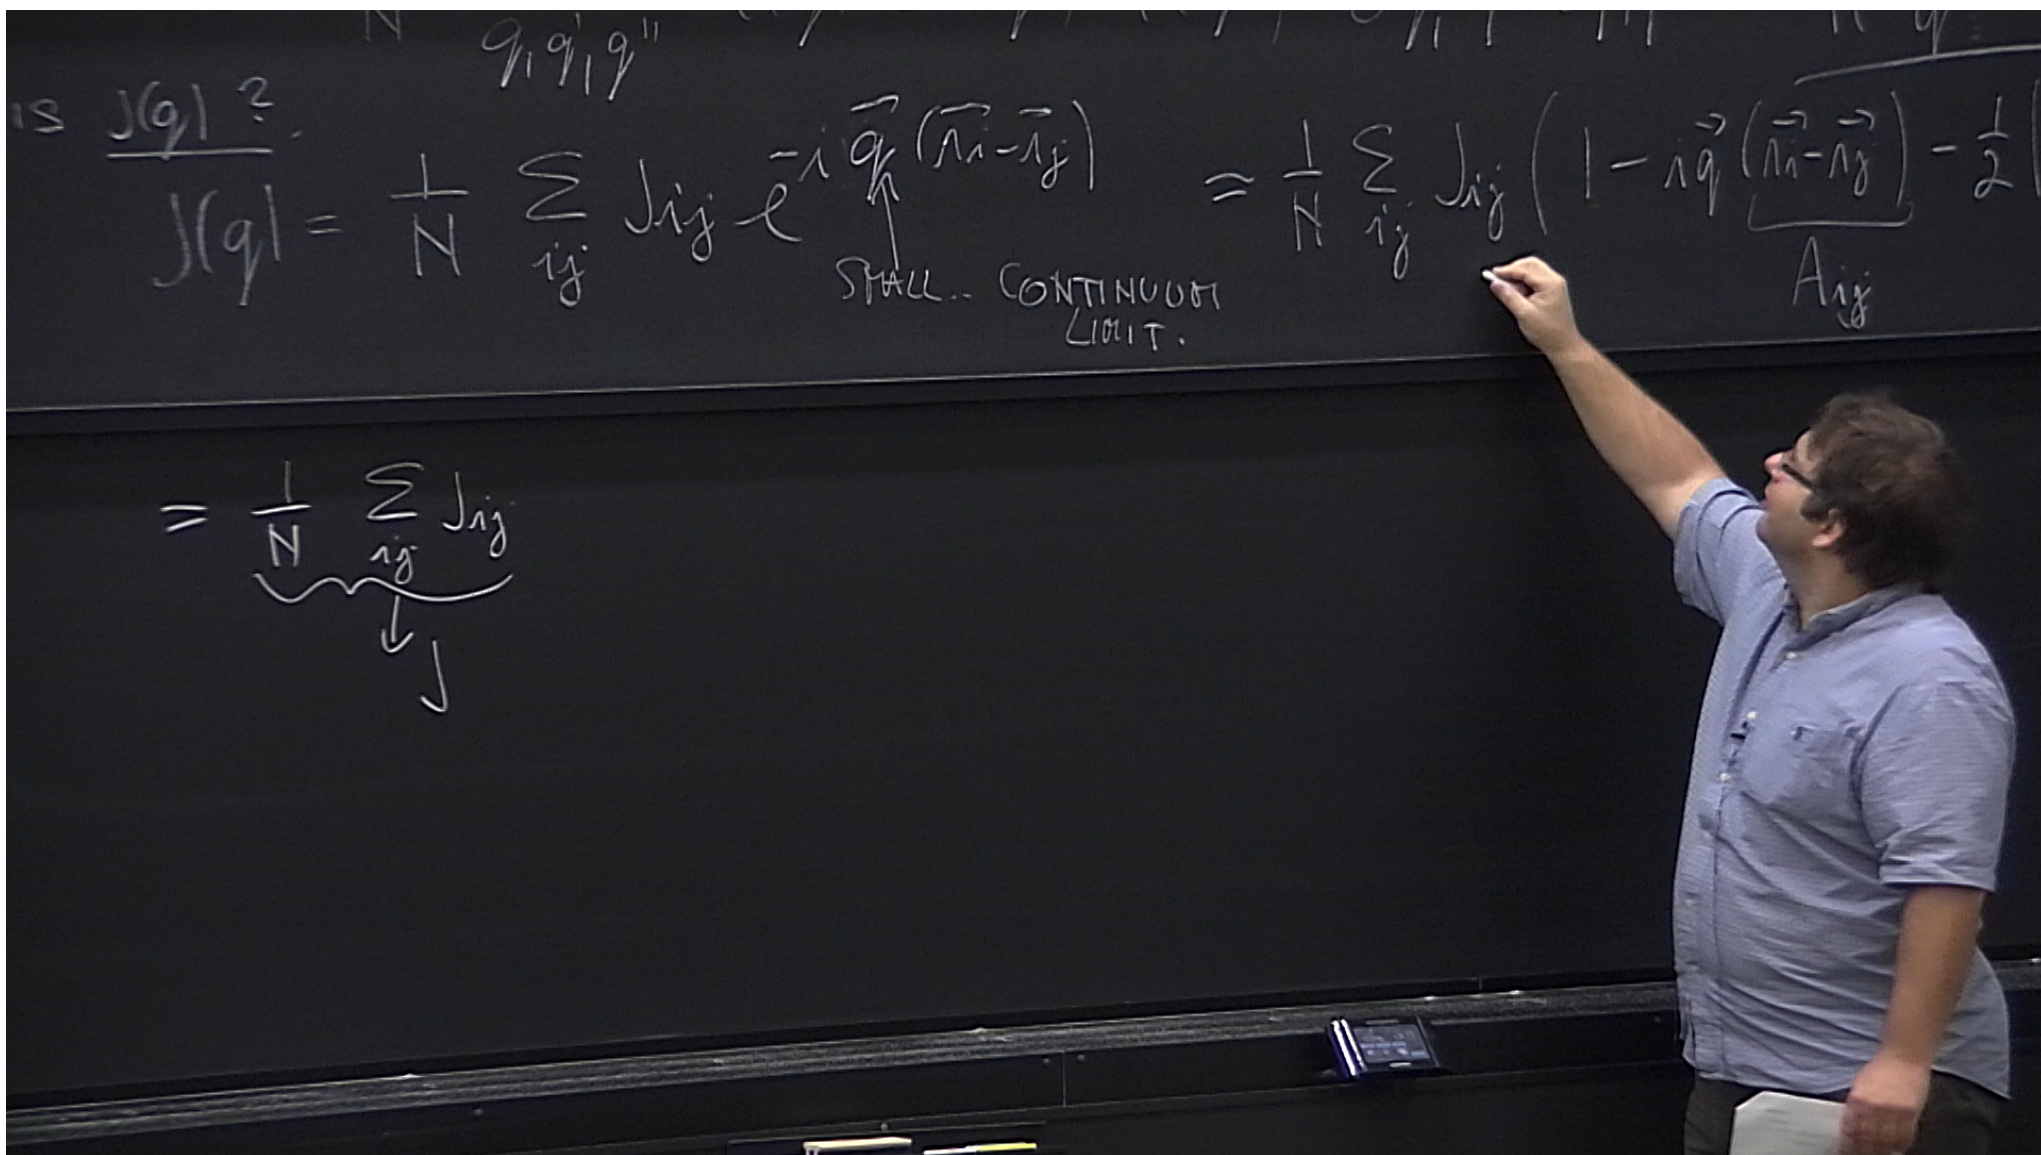 N q, q', q''
is J(q) ?
J(q) = 1/N Σ_ij J_ij e^{-i q⃗ (r⃗i - r⃗j)} ≈ 1/N Σ_ij J_ij ( 1 - i q⃗ (r⃗i - r⃗j) - 1/2 (
SMALL.. CONTINUUM
LIMIT.
A_ij
= 1/N Σ_ij J_ij
J